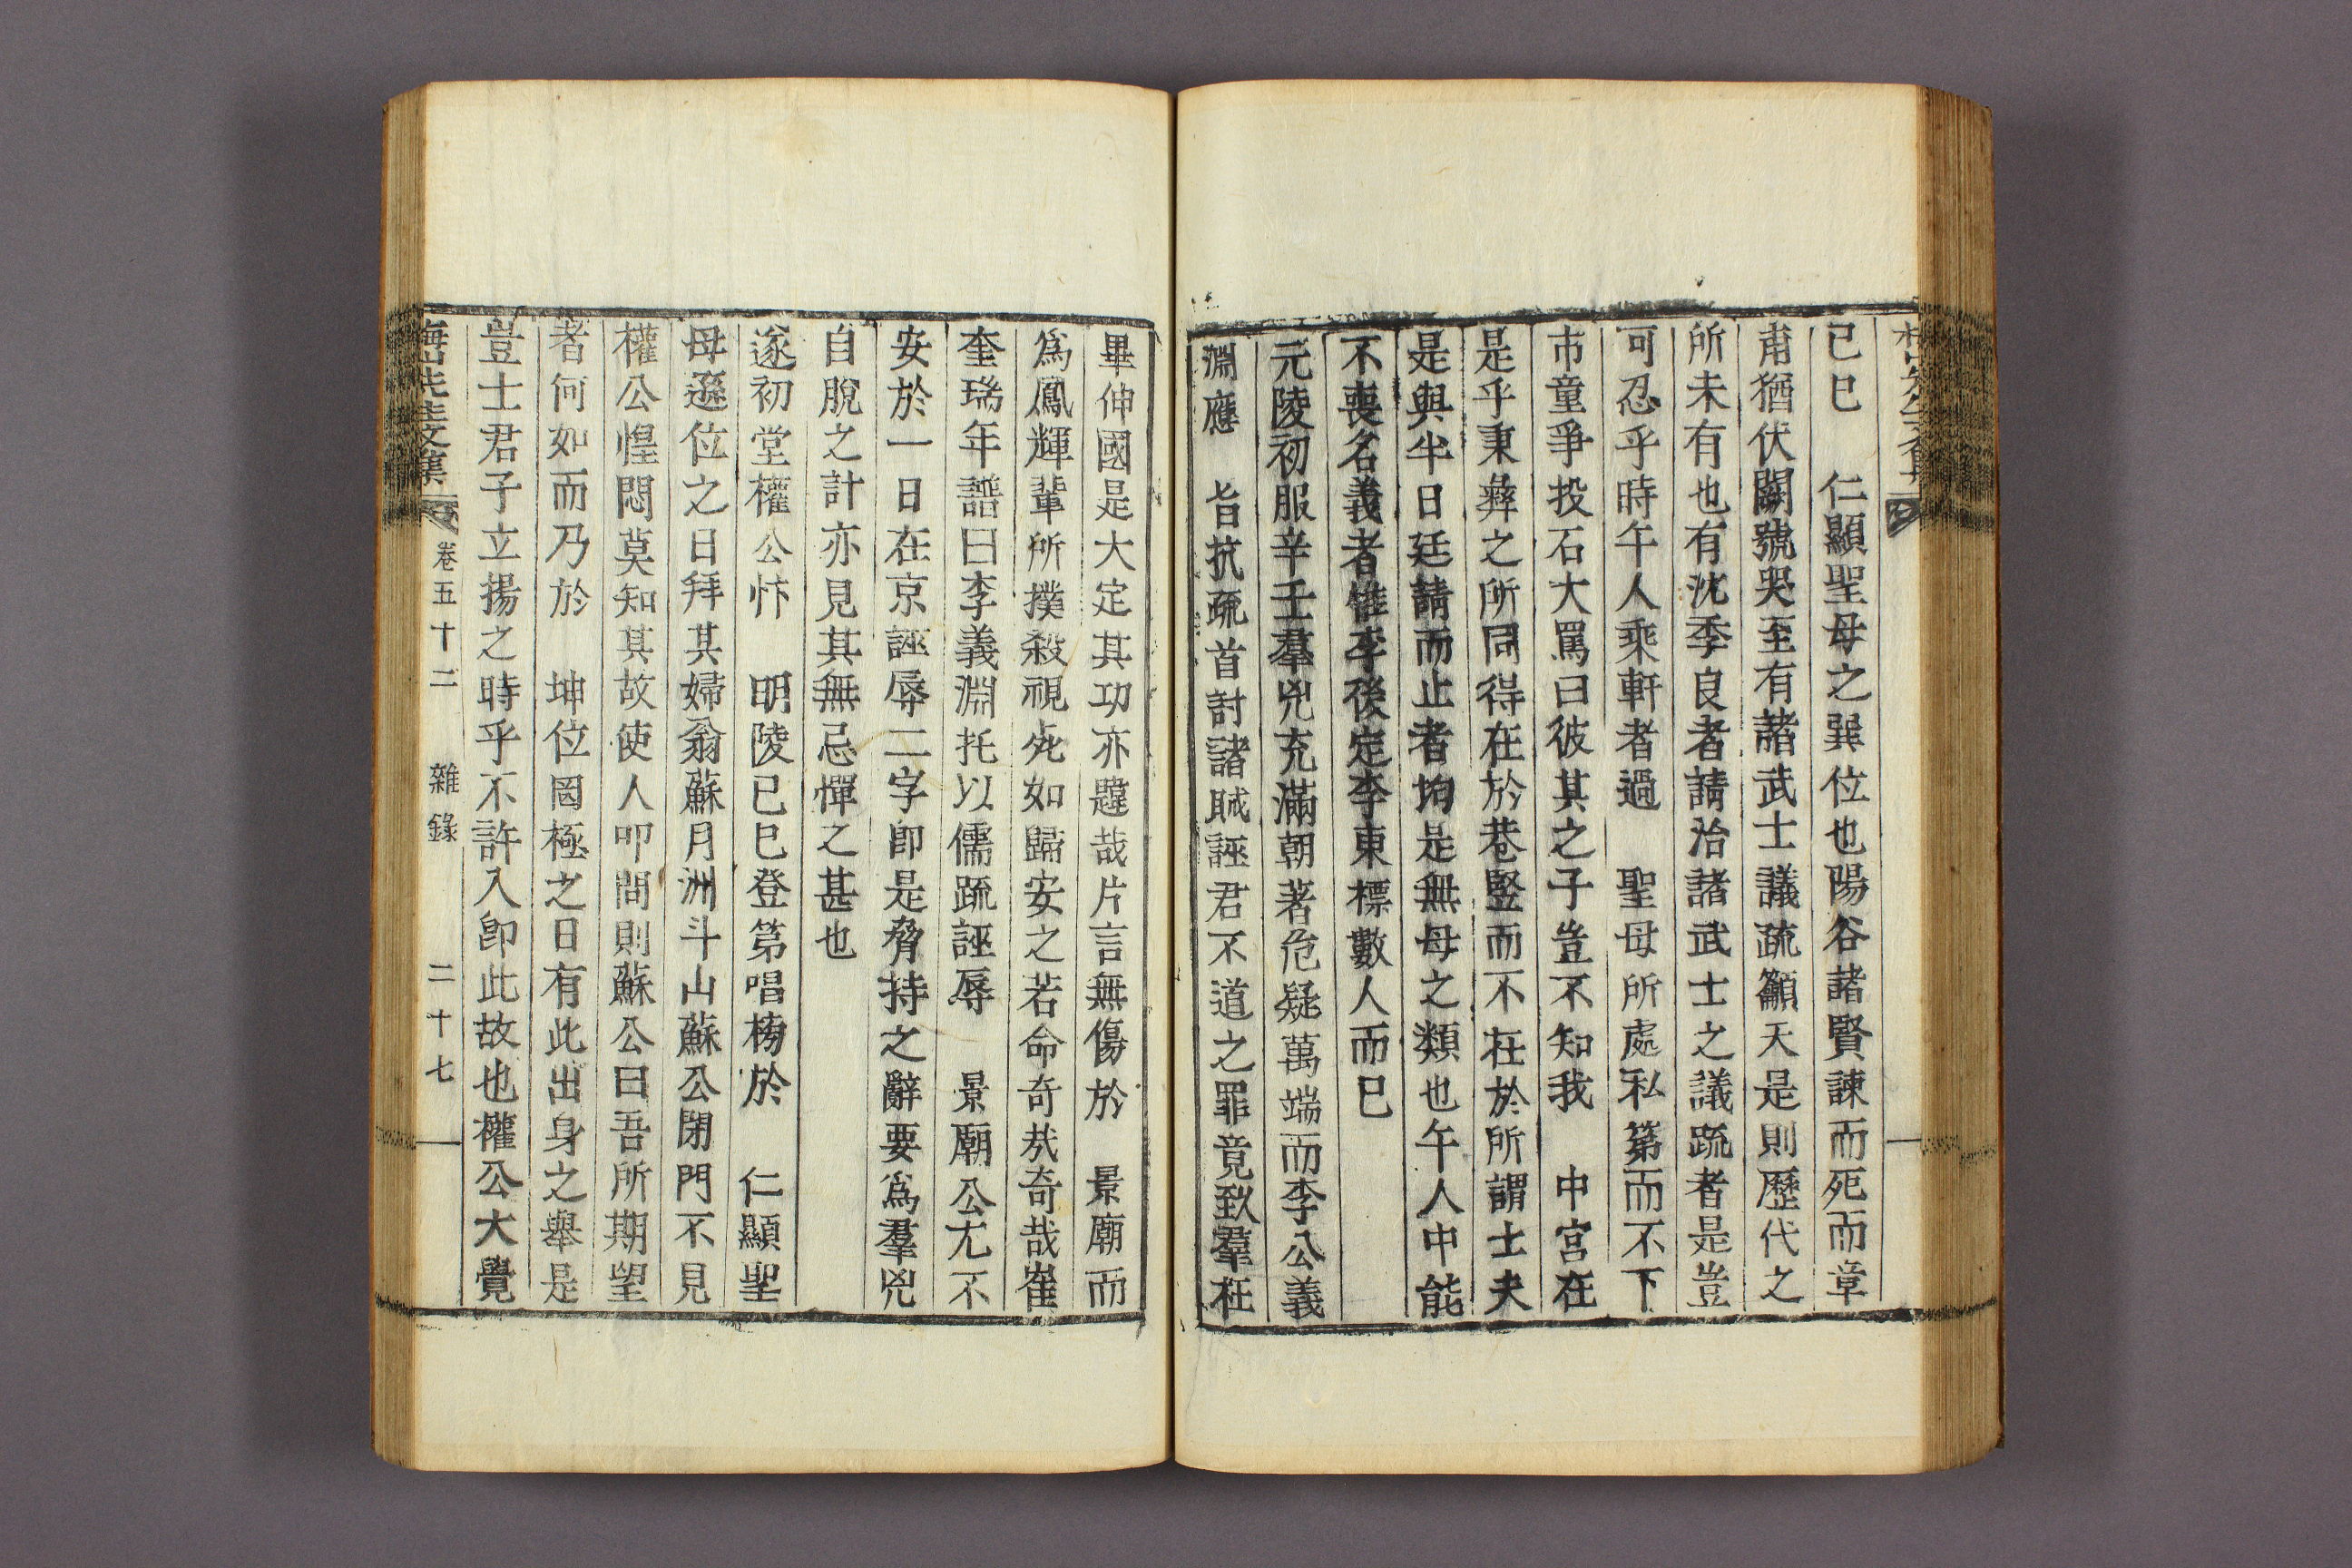 己巳 仁顯聖母之巽位也陽谷諸賢諫而死而章
甫猶伏闕號哭至有諸武士議疏籲天是則歷代之
所未有也有沈季良者請治諸武士之議疏者是豈
可忍乎時午人乘軒者過 聖母所處私第而不下
市童爭投石大罵曰彼其之子豈不知我 中宮在
是乎秉彜之所同得在於巷竪而不在於所謂士夫
是與半日廷請而止者均是無母之類也午人中能
不喪名義者惟李後定李東標數人而已
元陵初服辛壬羣兇充滿朝著危疑萬端而李公義
淵應 旨抗疏首討諸賊誣君不道之罪竟致羣枉
畢伸國是大定其功亦韙哉片言無傷於 景廟而
爲鳳輝輩所撲殺視死如歸安之若命奇哉奇哉崔
奎瑞年譜曰李義淵托以儒疏誣辱 景廟公尤不
安於一日在京誣辱二字卽是脅持之辭要爲羣兇
自脫之計亦見其無忌憚之甚也
遂初堂權公忭 明陵己巳登第唱榜於 仁顯聖
母遜位之日拜其婦翁蘇月洲斗山蘇公閉門不見
權公惶悶莫知其故使人叩問則蘇公曰吾所期望
者何如而乃於 坤位罔極之日有此出身之擧是
豈士君子立揚之時乎不許入卽此故也權公大覺
梅山先生文集 卷五十二 雜錄 二十七